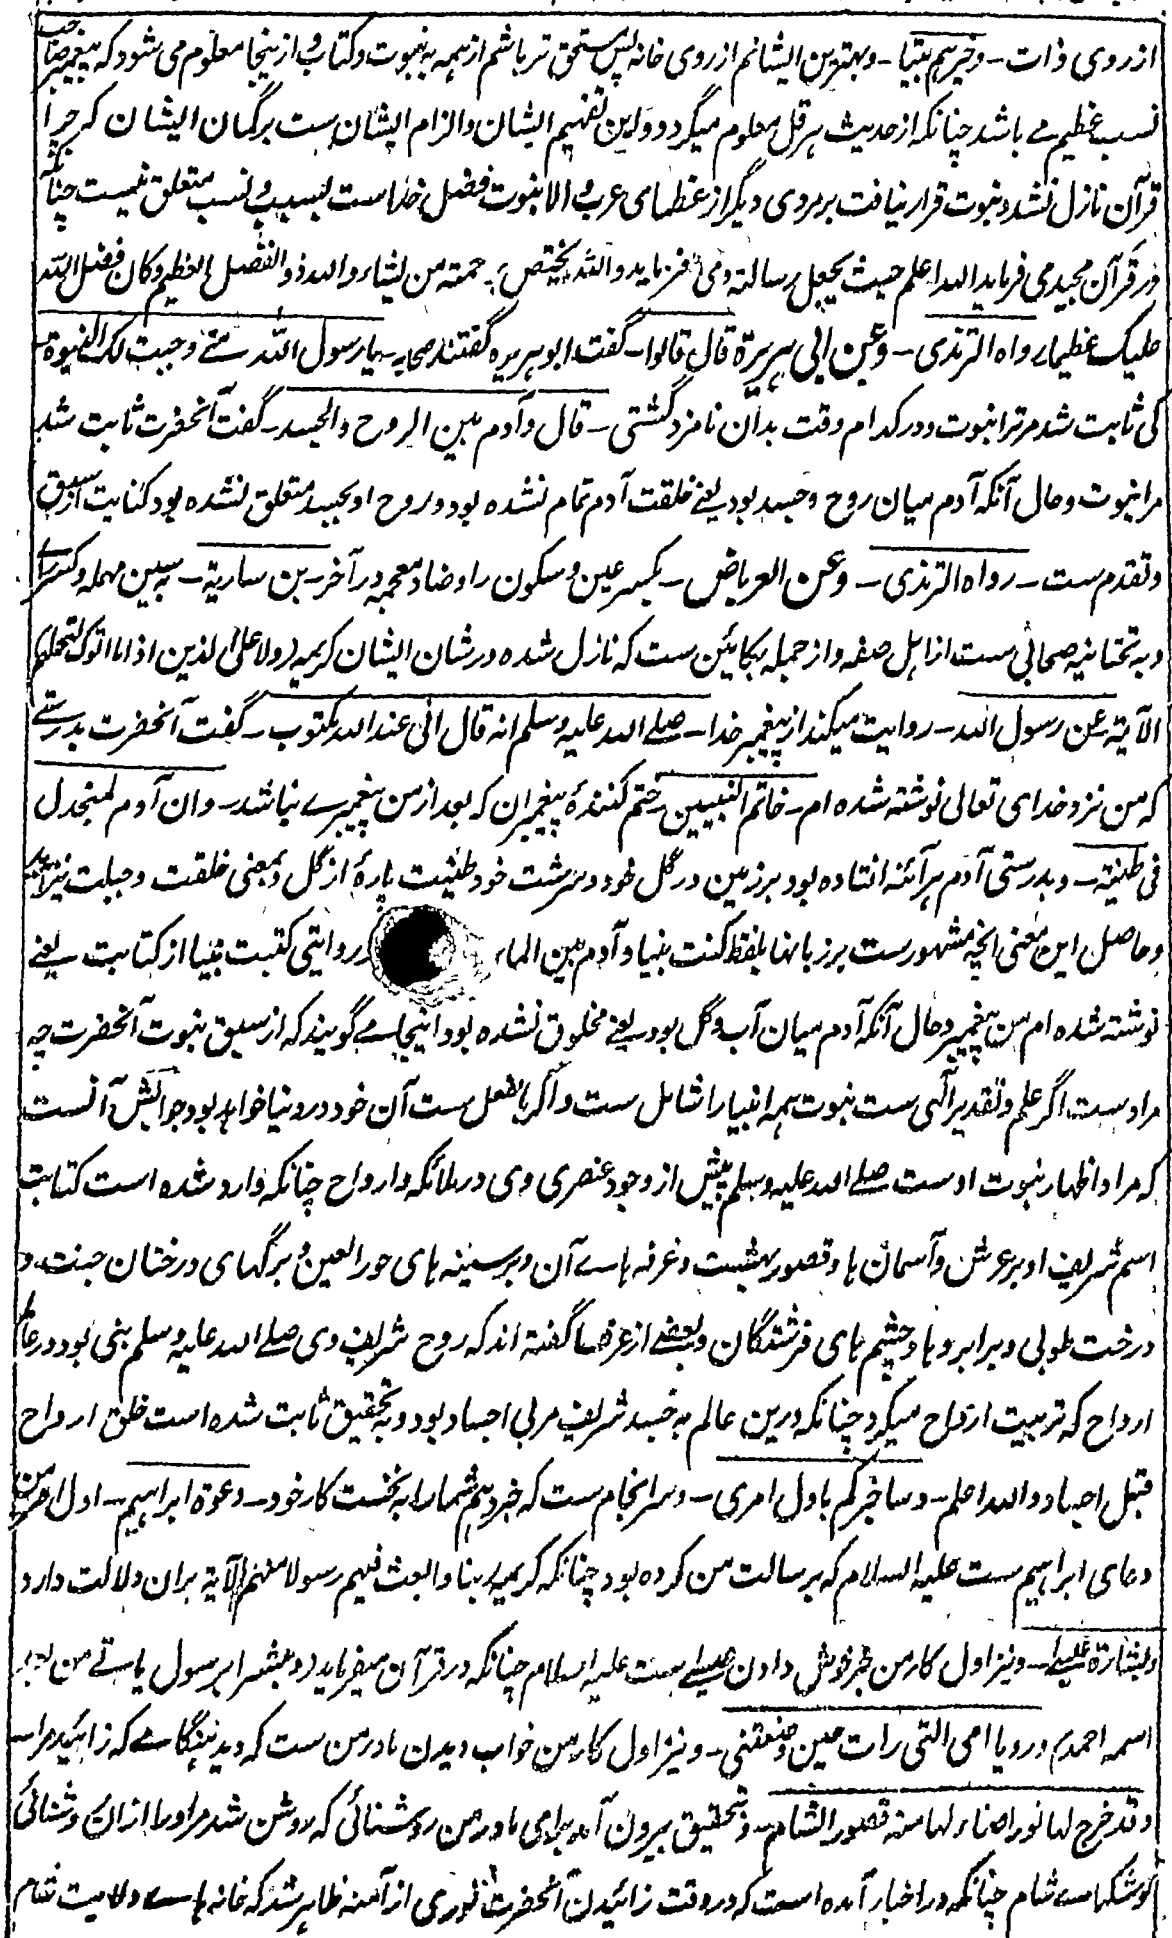 از روی ذات ـ وخیرهم بیتا ـ وبهترین ایشانم از روی خانه پس مستحق تر باشم از همه به نبوت وکتاب و از ینجا معلوم می شود که پیغمبر صاحب
نسب عظیم مے باشد چنانکه از حدیث هرقل معلوم میگردد و این تفهیم ایشان والزام ایشان ست برگمان ایشان که چرا
قرآن نازل نشد و نبوت قرار نیافت بر مردی دیگر از عظمای عرب و الا نبوت فضل خدا ست بسبب و نسب متعلق نیست چنانکه
در قرآن مجید می فرماید الله اعلم حیث یجعل رسالته و می فرماید والله یختص برحمته من یشاء والله ذو الفضل العظیم وکان فضل الله
علیک عظیما رواه الترمذی ـ وعن ابی هریرة قال قالوا ـ گفت ابو هریره گفتند صحابه ـ یا رسول الله متے وجبت لک النبوة ـ
کی ثابت شد مر ترا نبوت و در کدام وقت بدان نامزد گشتی ـ قال وآدم بین الروح والجسد ـ گفت آنحضرت ثابت شد
مرا نبوت وحال آنکه آدم میان روح وجسد بود یعنے خلقت آدم تمام نشده بود و روح او بجسد متعلق نشده بود کنایت از سبق
وتقدم ست ـ رواه الترمذی ـ وعن العرباض ـ بکسر عین وسکون را وضاد معجمه در آخر ـ بن ساریة ـ به سین مهمله وکسر راے
و به تحتانیه صحابی ست از اهل صفه واز جمله بکایین ست که نازل شده در شان ایشان کریمه (ولا علی الذین اذا ما اتوک لتحملهم
الآیة) عن رسول الله ـ روایت میکند از پیغمبر خدا ـ صلے الله علیه وسلم انه قال انی عند الله مکتوب ـ گفت آنحضرت بدرستے
که من نزد خدای تعالی نوشته شده ام ـ خاتم النبیین ـ ختم کنندۀ پیغمبران که بعد از من پیغمبرے نباشد ـ وان آدم لمنجدل
فی طینته ـ و بدرستی آدم هر آئنه افتاده بود بر زمین در گل خود و سرشت خود طینت پارۀ از گل و بمعنی خلقت و جبلت نیز آید
وحاصل این معنی آنچه مشهور ست بر زبانها بلفظ کنت نبیا وآدم بین الماء روایتی کتبت نبیا از کتابت یعنے
نوشته شده ام من پیغمبر وحال آنکه آدم میان آب و گل بود یعنے مخلوق نشده بود اینجا مے گویند که از سبق نبوت آنحضرت چه
مراد ست اگر علم وتقدیر آلهی ست نبوت همه انبیا را شامل ست و اگر بالفعل ست آن خود در دنیا خواهد بود جوابش آنست
که مراد اظهار نبوت اوست صلے الله علیه وسلم پیش از وجود عنصری وی در ملائکه و ارواح چنانکه وارد شده است کتابت
اسم شریف او بر عرش و آسمان ها و قصور بهشت و غرفه هاے آن و بر سینه های حور العین و برگهای درختان جنت و
درخت طوبی و بر ابروها و چشم های فرشتگان و بعضے از عرفا گفته اند که روح شریف وی صلے الله علیه وسلم نبی بود در عالم
ارواح که تربیت ارواح میکرد چنانکه درین عالم به جسد شریف مربی اجساد بود و به تحقیق ثابت شده است خلق ارواح
قبل اجساد والله اعلم ـ وساخبرکم باول امری ـ و سرانجام ست که خبر دهم شما را به نخست کار خود ـ دعوة ابراهیم ـ اول امر من
دعای ابراهیم ست علیه السلام که برسالت من کرده بود چنانکه کریمه ربنا وابعث فیهم رسولا منهم الآیة بران دلالت دارد
وبشارة عیسے ـ و نیز اول کار من خبر خوش دادن عیسے ست علیه السلام چنانکه در قرآن میفرماید (ومبشرا برسول یاتے من بعد
اسمه احمد) و رویا امی التی رات حین وضعتنی ـ و نیز اول کار من خواب دیدن مادر من ست که دید هنگامے که زائید مرا ـ
وقد خرج لها نور اضاء لها منه قصور الشام ـ و بتحقیق بیرون آمد برای مادر من روشنائی که روشن شد مر او را ازان روشنائی
کوشکهاے شام چنانکه در اخبار آمده است که در وقت زائیدن آنحضرت نوری از آمنه ظاهر شد که خانه هاے ولایت شام